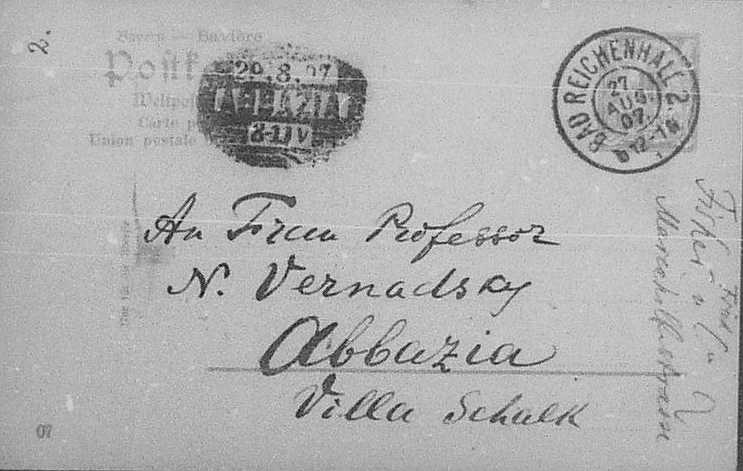 2.
Bayern — Bavière
Postk
Weltpos
Carte p
Union postale
29.8.07
ABBAZIA
BAD REICHENHALL 2
27
AUG.
07
An Frau Professor
N. Vernadsky
Abbazia
Villa Schalk
07